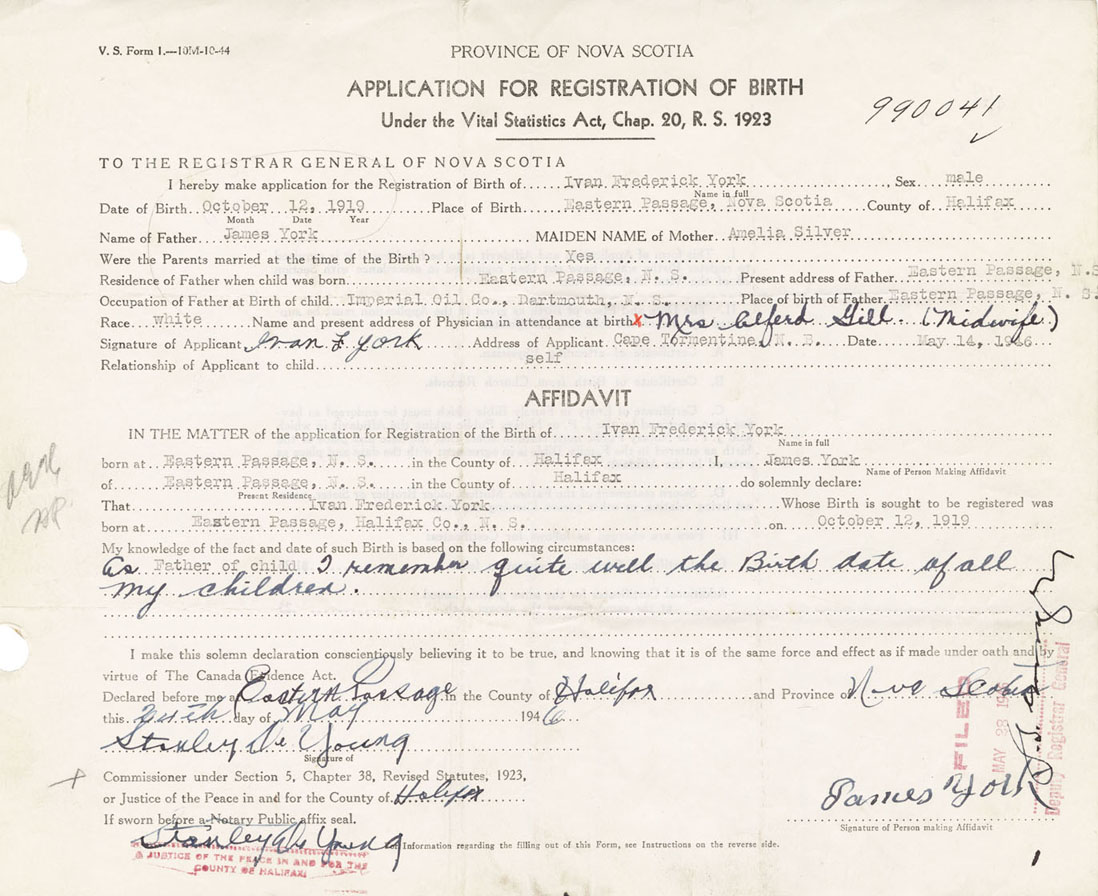 V. S. Form 1.—10M-10-44
PROVINCE OF NOVA SCOTIA
APPLICATION FOR REGISTRATION OF BIRTH
Under the Vital Statistics Act, Chap. 20, R. S. 1923
990041
TO THE REGISTRAR GENERAL OF NOVA SCOTIA
I hereby make application for the Registration of Birth of Ivan Frederick York, Sex male
Name in full
Date of Birth October 12, 1919 Place of Birth Eastern Passage, Nova Scotia County of Halifax
Month Date Year
Name of Father James York MAIDEN NAME of Mother Amelia Silver
Were the Parents married at the time of the Birth? Yes
Residence of Father when child was born Eastern Passage, N. S. Present address of Father Eastern Passage, N.S
Occupation of Father at Birth of child Imperial Oil Co., Dartmouth, N. S. Place of birth of Father Eastern Passage, N. S.
Race white Name and present address of Physician in attendance at birth X Mrs Alferd Gill. (Midwife)
Signature of Applicant Ivan F York Address of Applicant Cape Tormentine, N. B. Date May 14, 1946
Relationship of Applicant to child self
AFFIDAVIT
IN THE MATTER of the application for Registration of the Birth of Ivan Frederick York
Name in full
born at Eastern Passage, N. S. in the County of Halifax I, James York
Name of Person Making Affidavit
of Eastern Passage, N. S. in the County of Halifax do solemnly declare:
Present Residence
That Ivan Frederick York Whose Birth is sought to be registered was
born at Eastern Passage, Halifax Co., N. S. on October 12, 1919
My knowledge of the fact and date of such Birth is based on the following circumstances:
As Father of child I remember quite well the Birth date of all
my children.
I make this solemn declaration conscientiously believing it to be true, and knowing that it is of the same force and effect as if made under oath and by
virtue of The Canada Evidence Act.
Declared before me at Eastern Passage in the County of Halifax and Province of Nova Scotia
this 24th day of May 1946
Stanley De Young
Signature of
Commissioner under Section 5, Chapter 38, Revised Statutes, 1923,
or Justice of the Peace in and for the County of Halifax
If sworn before a Notary Public affix seal.
Stanley De Young
A JUSTICE OF THE PEACE IN AND FOR THE
COUNTY OF HALIFAX
For Information regarding the filling out of this Form, see Instructions on the reverse side.
James York
Signature of Person making Affidavit
FILED
MAY 28
Deputy Registrar General